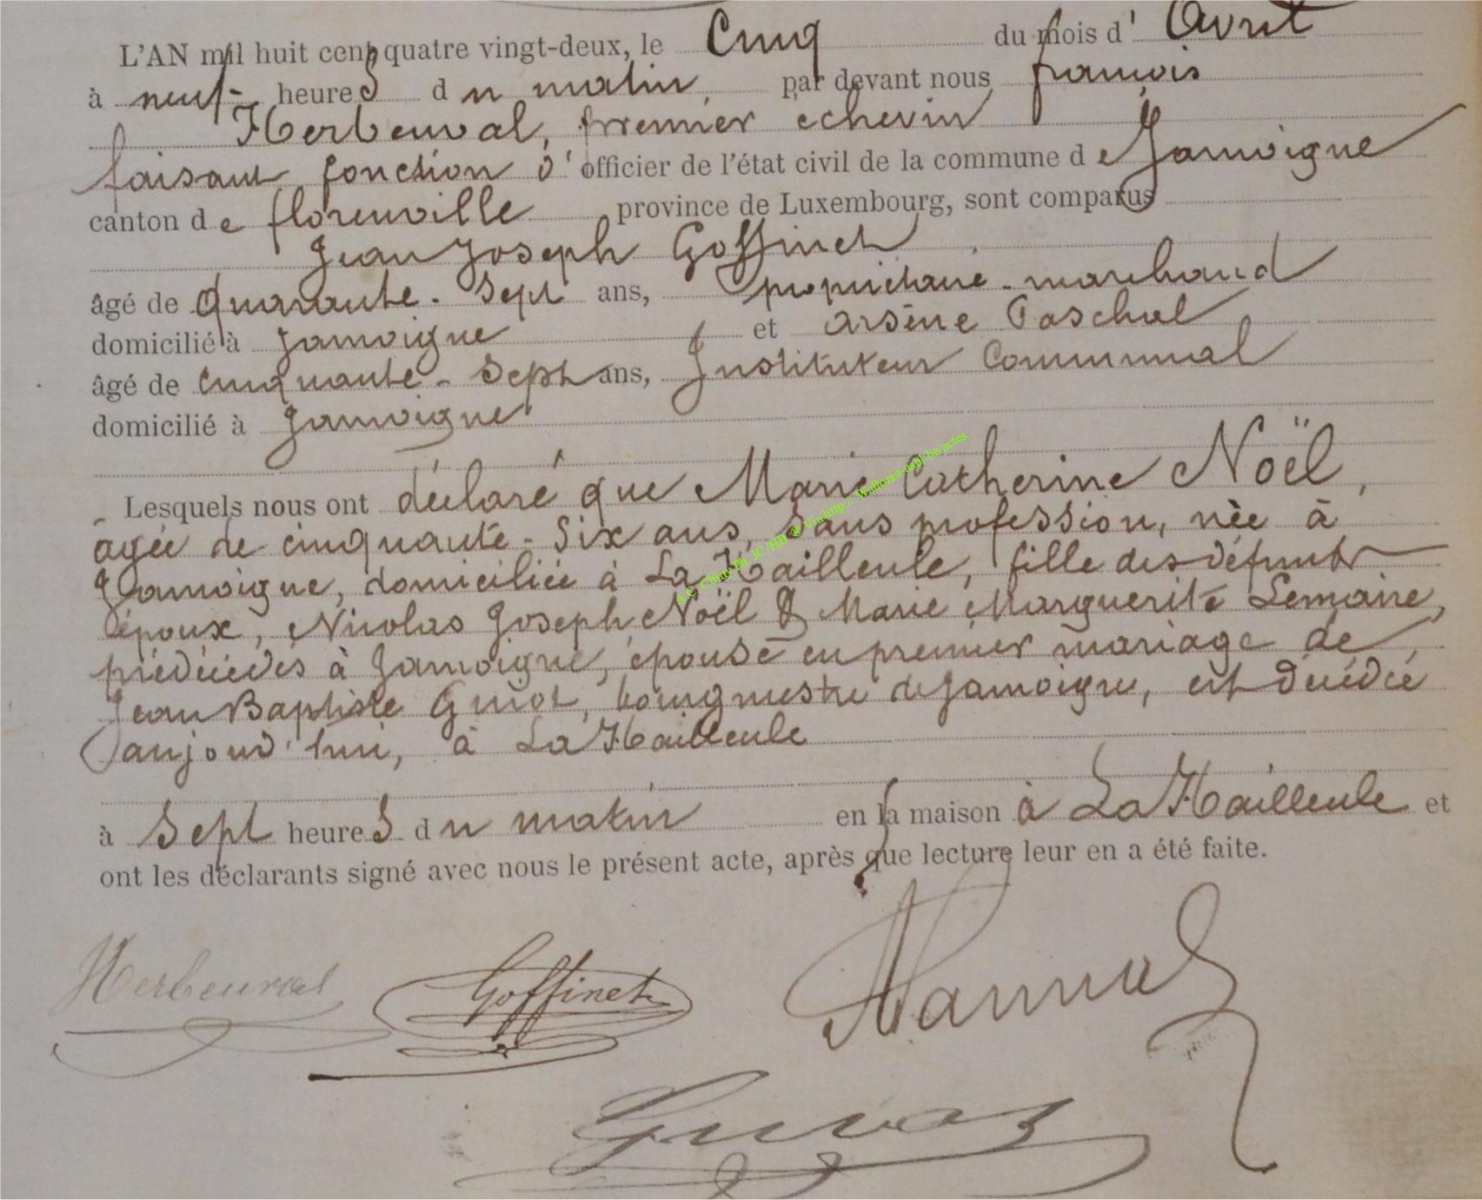 L'AN mil huit cent quatre vingt-deux, le Cinq du mois d' Avril
à neuf heures du matin, par devant nous françois
Herbeuval, premier echevin
faisant fonction d'officier de l'état civil de la commune de Jamoigne
canton de florenville province de Luxembourg, sont comparus
Jean Joseph Goffinet
âgé de Quarante-Sept ans, propriétaire-marchand
domicilié à Jamoigne et Arsène Paschal
âgé de cinquante-Sept ans, Instituteur Communal
domicilié à Jamoigne
Lesquels nous ont déclaré que Marie Catherine Noël,
âgée de cinquante-Six ans, Sans profession, née à
Jamoigne, domiciliée à La Hailleule, fille des défunts
époux, Nicolas Joseph Noël & Marie Marguerite Lemaire,
prédécédés à Jamoigne, épouse en premier mariage de
Jean Baptiste Guiot, bourgmestre de Jamoigne, est décédée
aujourd'hui, à La Hailleule
à Sept heures du matin en la maison à La Hailleule et
ont les déclarants signé avec nous le présent acte, après que lecture leur en a été faite.
Herbeuval Goffinet